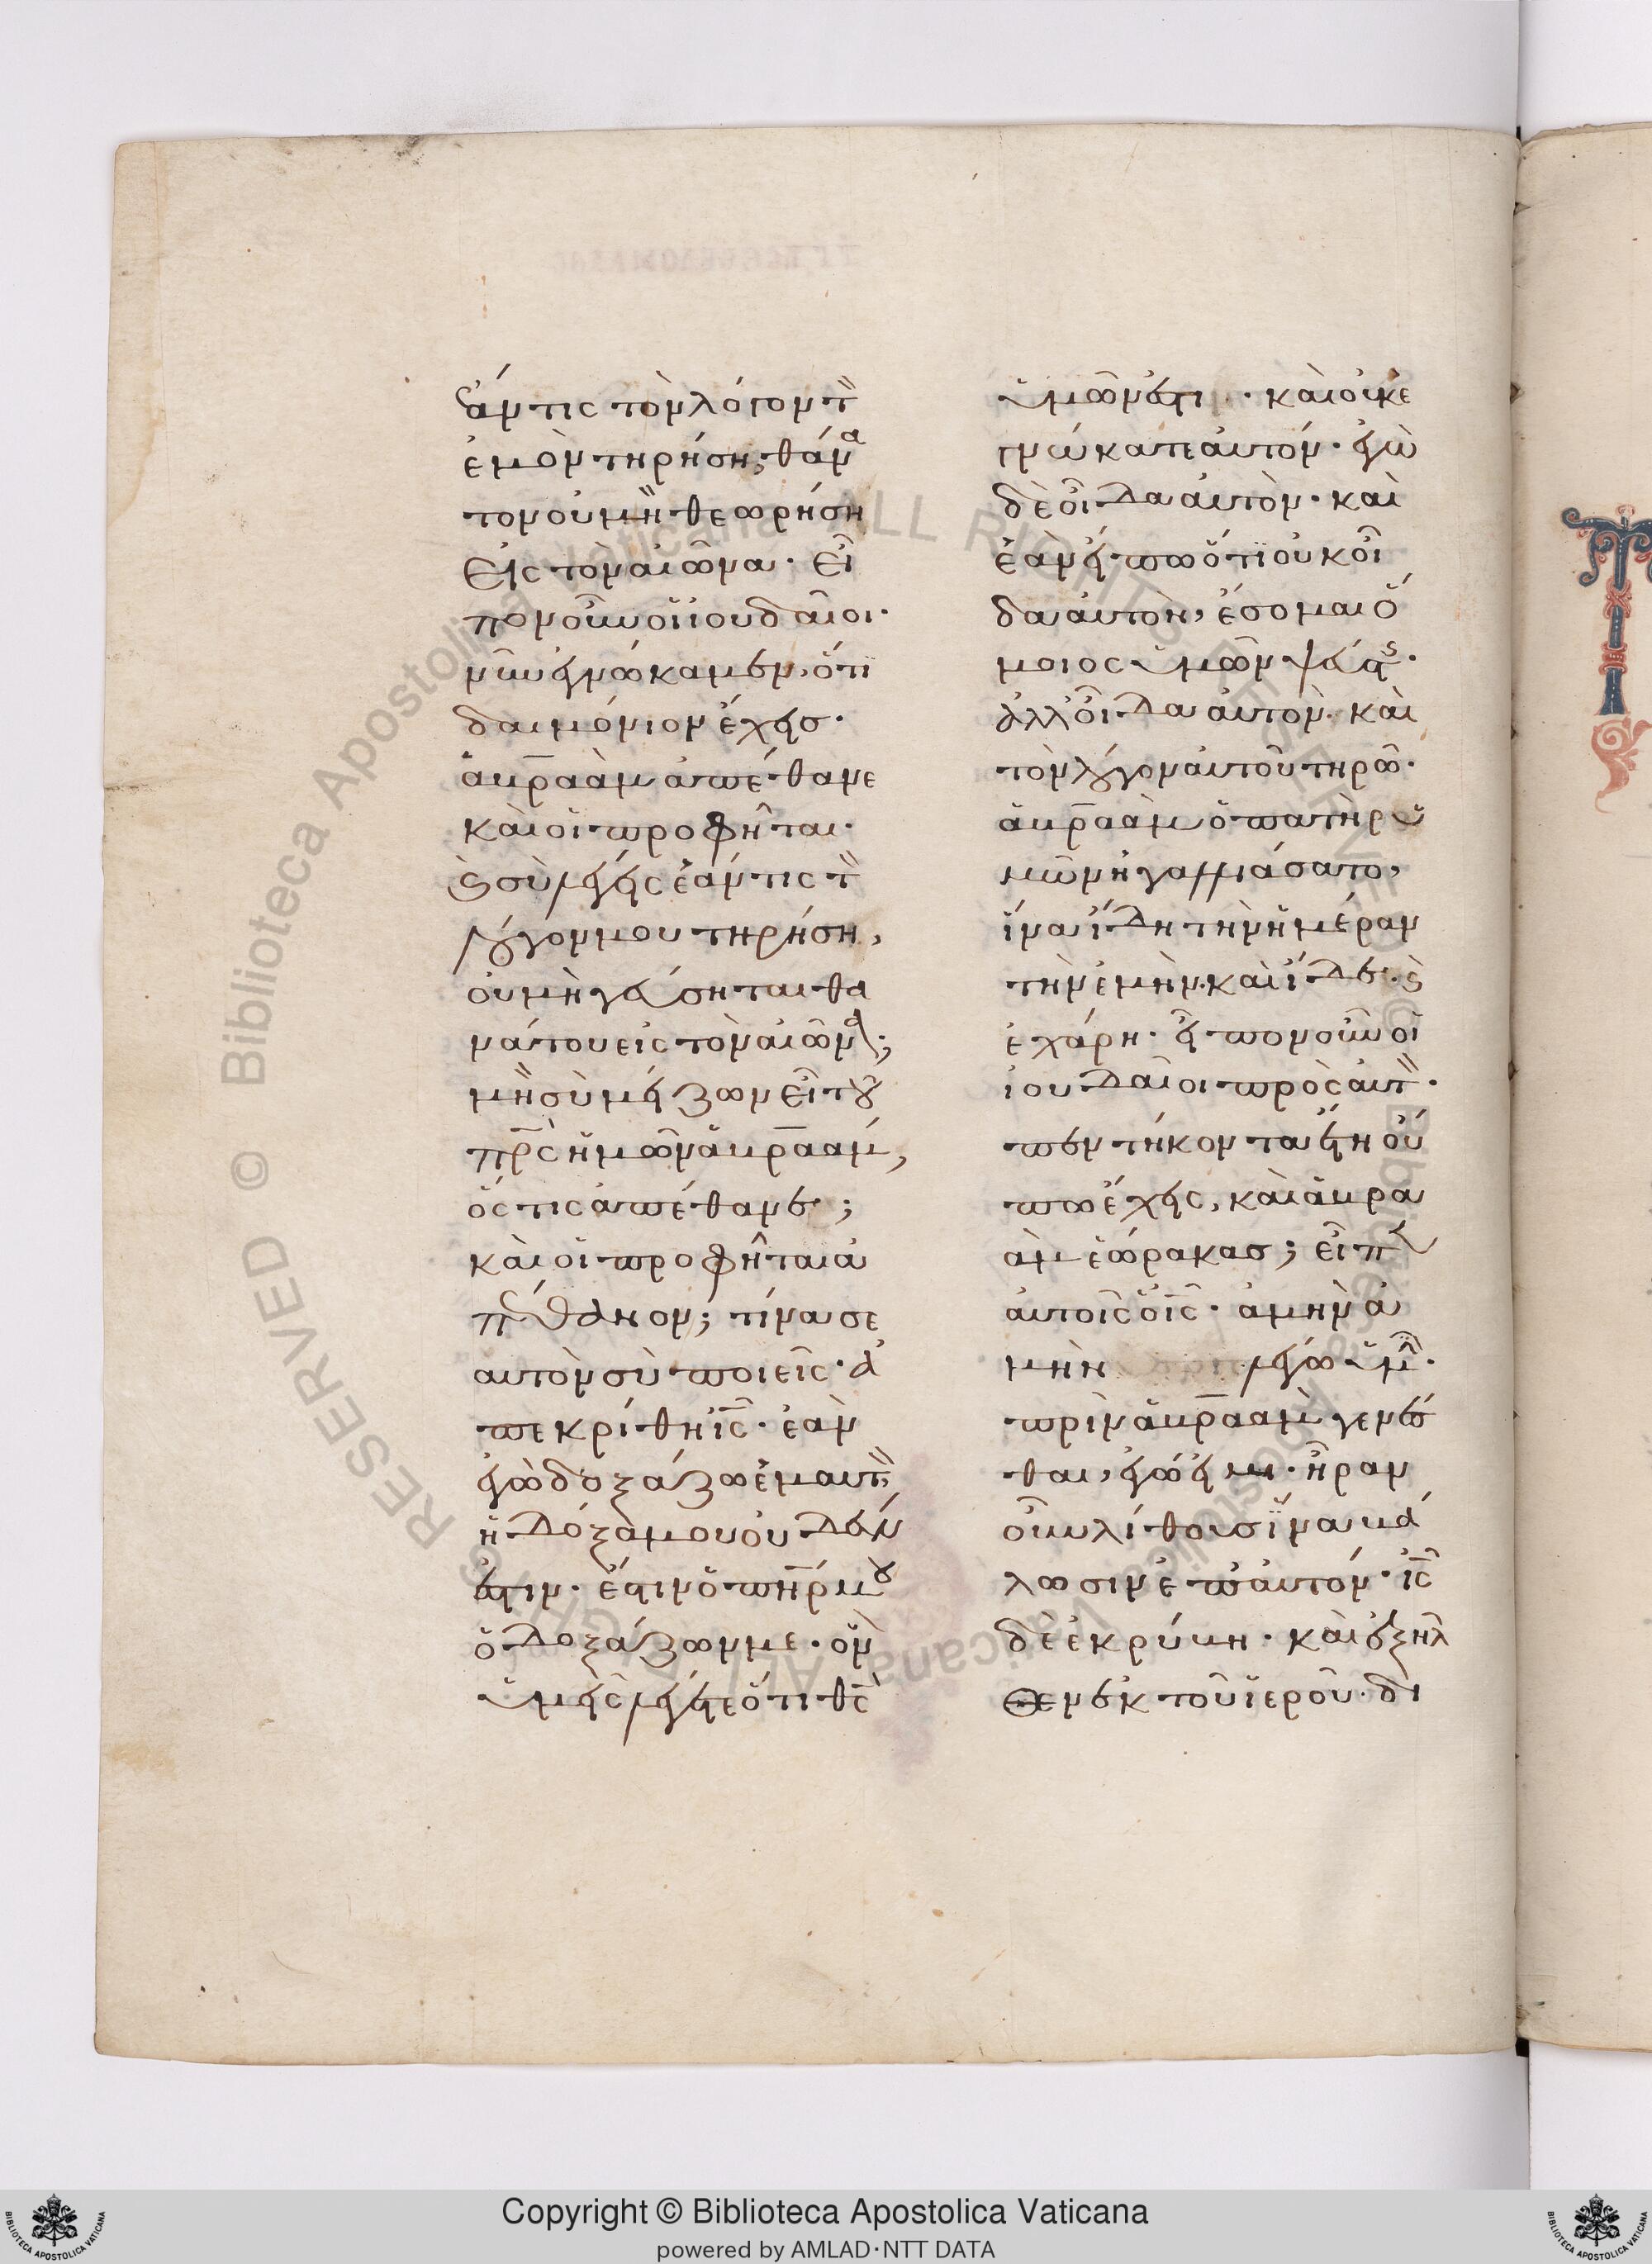 ἐάν τις τὸν λόγον τ̀
ἐμὸν τηρήση, θάνα
τον οὐ μὴ θεωρήση
εἰς τὸν αἰῶνα. εἶ
πον οὖν οἱ ϊουδαῖοι.
νῦν ἐγνώκαμεν, ὅτϊ
δαιμόνιον ἔχεισ.
ἀβρ̅αὰμ ἀπέθανε
καὶ οἱ προφῆται.
ϗ σὺ λέγεις ἐάν τις τ̀
λόγον μου τηρήση,
οὐ μὴ γεύσηται θα
νάτου εἰς τὸν αἰῶνα;
μὴ σὺ μείζων εἶ τοῦ
π̅ρ̅ς ἡμῶν ἀβρ̅αάμ,
ὅς τις ἀπέθανεν;
καὶ οἱ προφῆται ἀ
πέθανον; τίνα σε
αυτὸν σὺ ποιεῖς. ἀ
πεκρίθη ι̅ς̅. ἐὰν
ἐγὼ δοξάζω ἐμαυτ̀,
ἡ δόξα μου οὐδέν
ἐστιν. ἔστιν ὁ π̅η̅ρ μου
ὁ δοξάζων με. ὃν
ὑμεῖς λέγετε ὅτι θ̅ς̅
ὑμῶν ἐστι. καὶ οὐκ ἐ
γνώκατε αὐτόν. ἐγὼ
δὲ οἶδα αὐτὸν. καὶ
ἐὰν εἴπω ὅτϊ οὐκ οἶ
δα αὐτὸν, ἔσομαι ὅ
μοιος ὑμῶν ψεύστης.
ἀλλ' οἶδα αὐτὸν. καὶ
τὸν λόγον αὐτοῦ τηρῶ.
ἀβρ̅αὰμ ὁ πατὴρ ὑ
μῶν ἠγαλλιάσατο,
ἵνα ἴδη τὴν ἡμέραν
τὴν ἐμὴν. καὶ ἴδεν. ϗ
ἐχάρη. εἶπον οὖν οἱ
ἰουδαῖοι πρὸς αὐτ̀.
πεντήκοντα ἔτη οὔ
πω ἔχεις, καὶ ἀβρα
ὰμ ἑώρακασ; εἶπεν
αὐτοῖς ὁ ι̅ς̅. ἀμὴν ἀ
μὴν λέγω ὑμῖν.
πρὶν ἀβρ̅αὰμ γενέσ
θαι, ἐγώ εἰμι. ἦραν
οὖν λίθουσ ϊνα βά
λωσιν ἐπ' αὐτόν. ι̅ς̅
δὲ ἐκρύβη. καὶ ἐξῆλ
θεν ἐκ τοῦ ἱεροῦ. δι
Copyright © Biblioteca Apostolica Vaticana
powered by AMLAD·NTT DATA